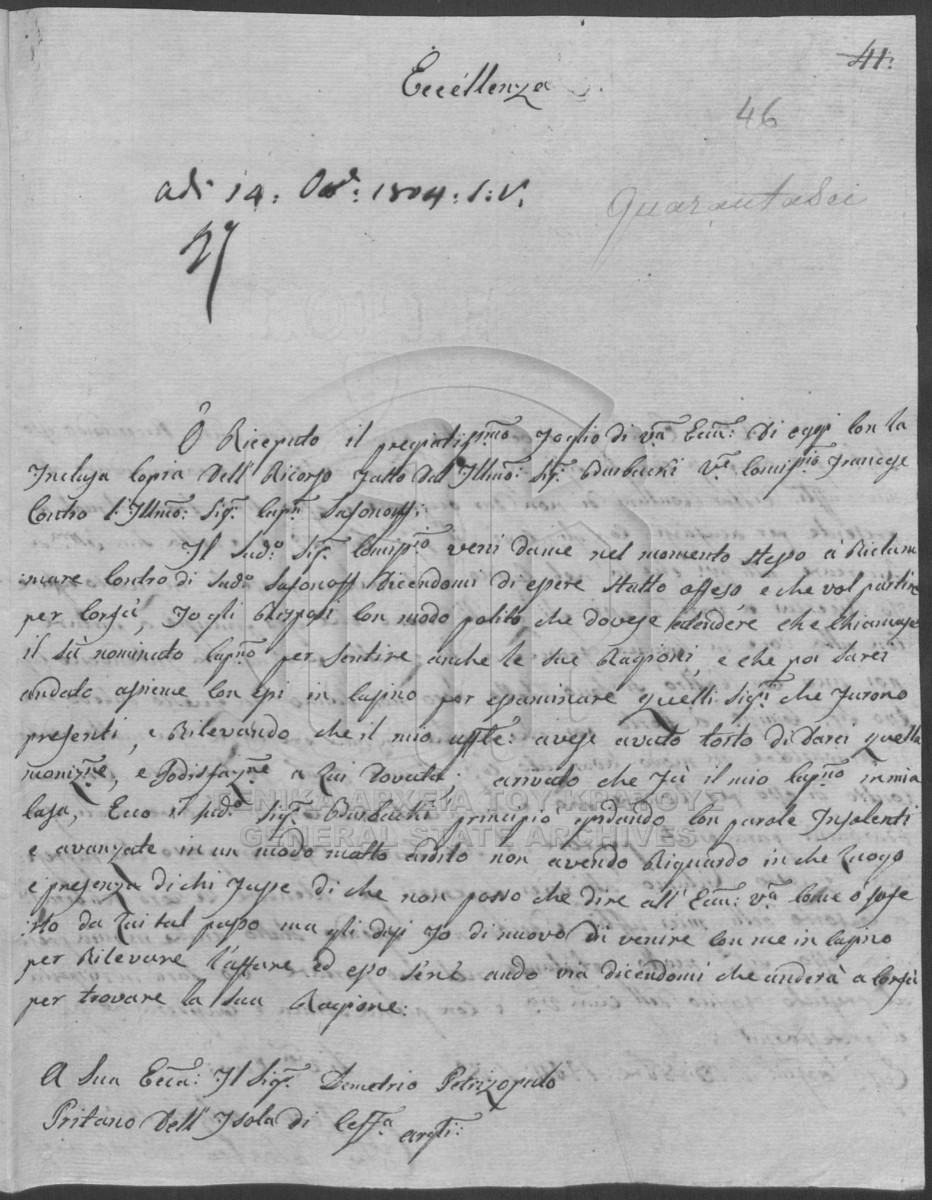 41:
Eccellenza
46
adi 14: 1804: S: V:
Quarantasei
27
Ô Riceputo il pregiatissmo Foglio di Vra Eccza: Di oggi con la
Inclusa Copia Dell' Ricorso Fatto Dall' Illmo: Sigr Burbachi Francese
Contro l'Illmo: Sigr Capno Sasonoff:
Il Sudo Sigr veni dame nel momento stesso a Riclam
mare Contro di Sudo Sasonoff Dicendomi di essere statto offeso e che vol partire
per Corfù, Jo gli Risposi con modo polito che dovese che chiamase
il sù nominato Capno per sentire anche le sue Ragioni, e che poi sarei
andato asieme con essi in Casino per esaminare quelli Sigri che Furono
presenti, e Rilevando che il mio uffle: avese avuto torto di Darci quella
monizne, e sodisfazne a lui dovuta; arivato che Fù il mio Capno in mia
Casa, Ecco il sudo Sigr Burbachi principio gridando con parole Insolenti
e avanzate in un modo molto ardito non avendo Riguardo in che luogo
e presenza di chi Fusse di che non posso che dire all' Eccza: Vra Come ò sofe
rto da lui tal passo ma gli dissi Jo di nuovo di venire con me in Casino
per Rilevare l'affare ed esso sene ando via dicendomi che anderà a Corfù
per trovare la sua Ragione:
A Sua Ecca: Il Sigr Demetrio Petrizopulo
Pritano Dell' Isola di Ceffa
ΓΕΝΙΚΑ ΑΡΧΕΙΑ ΤΟΥ ΚΡΑΤΟΥΣ
GENERAL STATE ARCHIVES